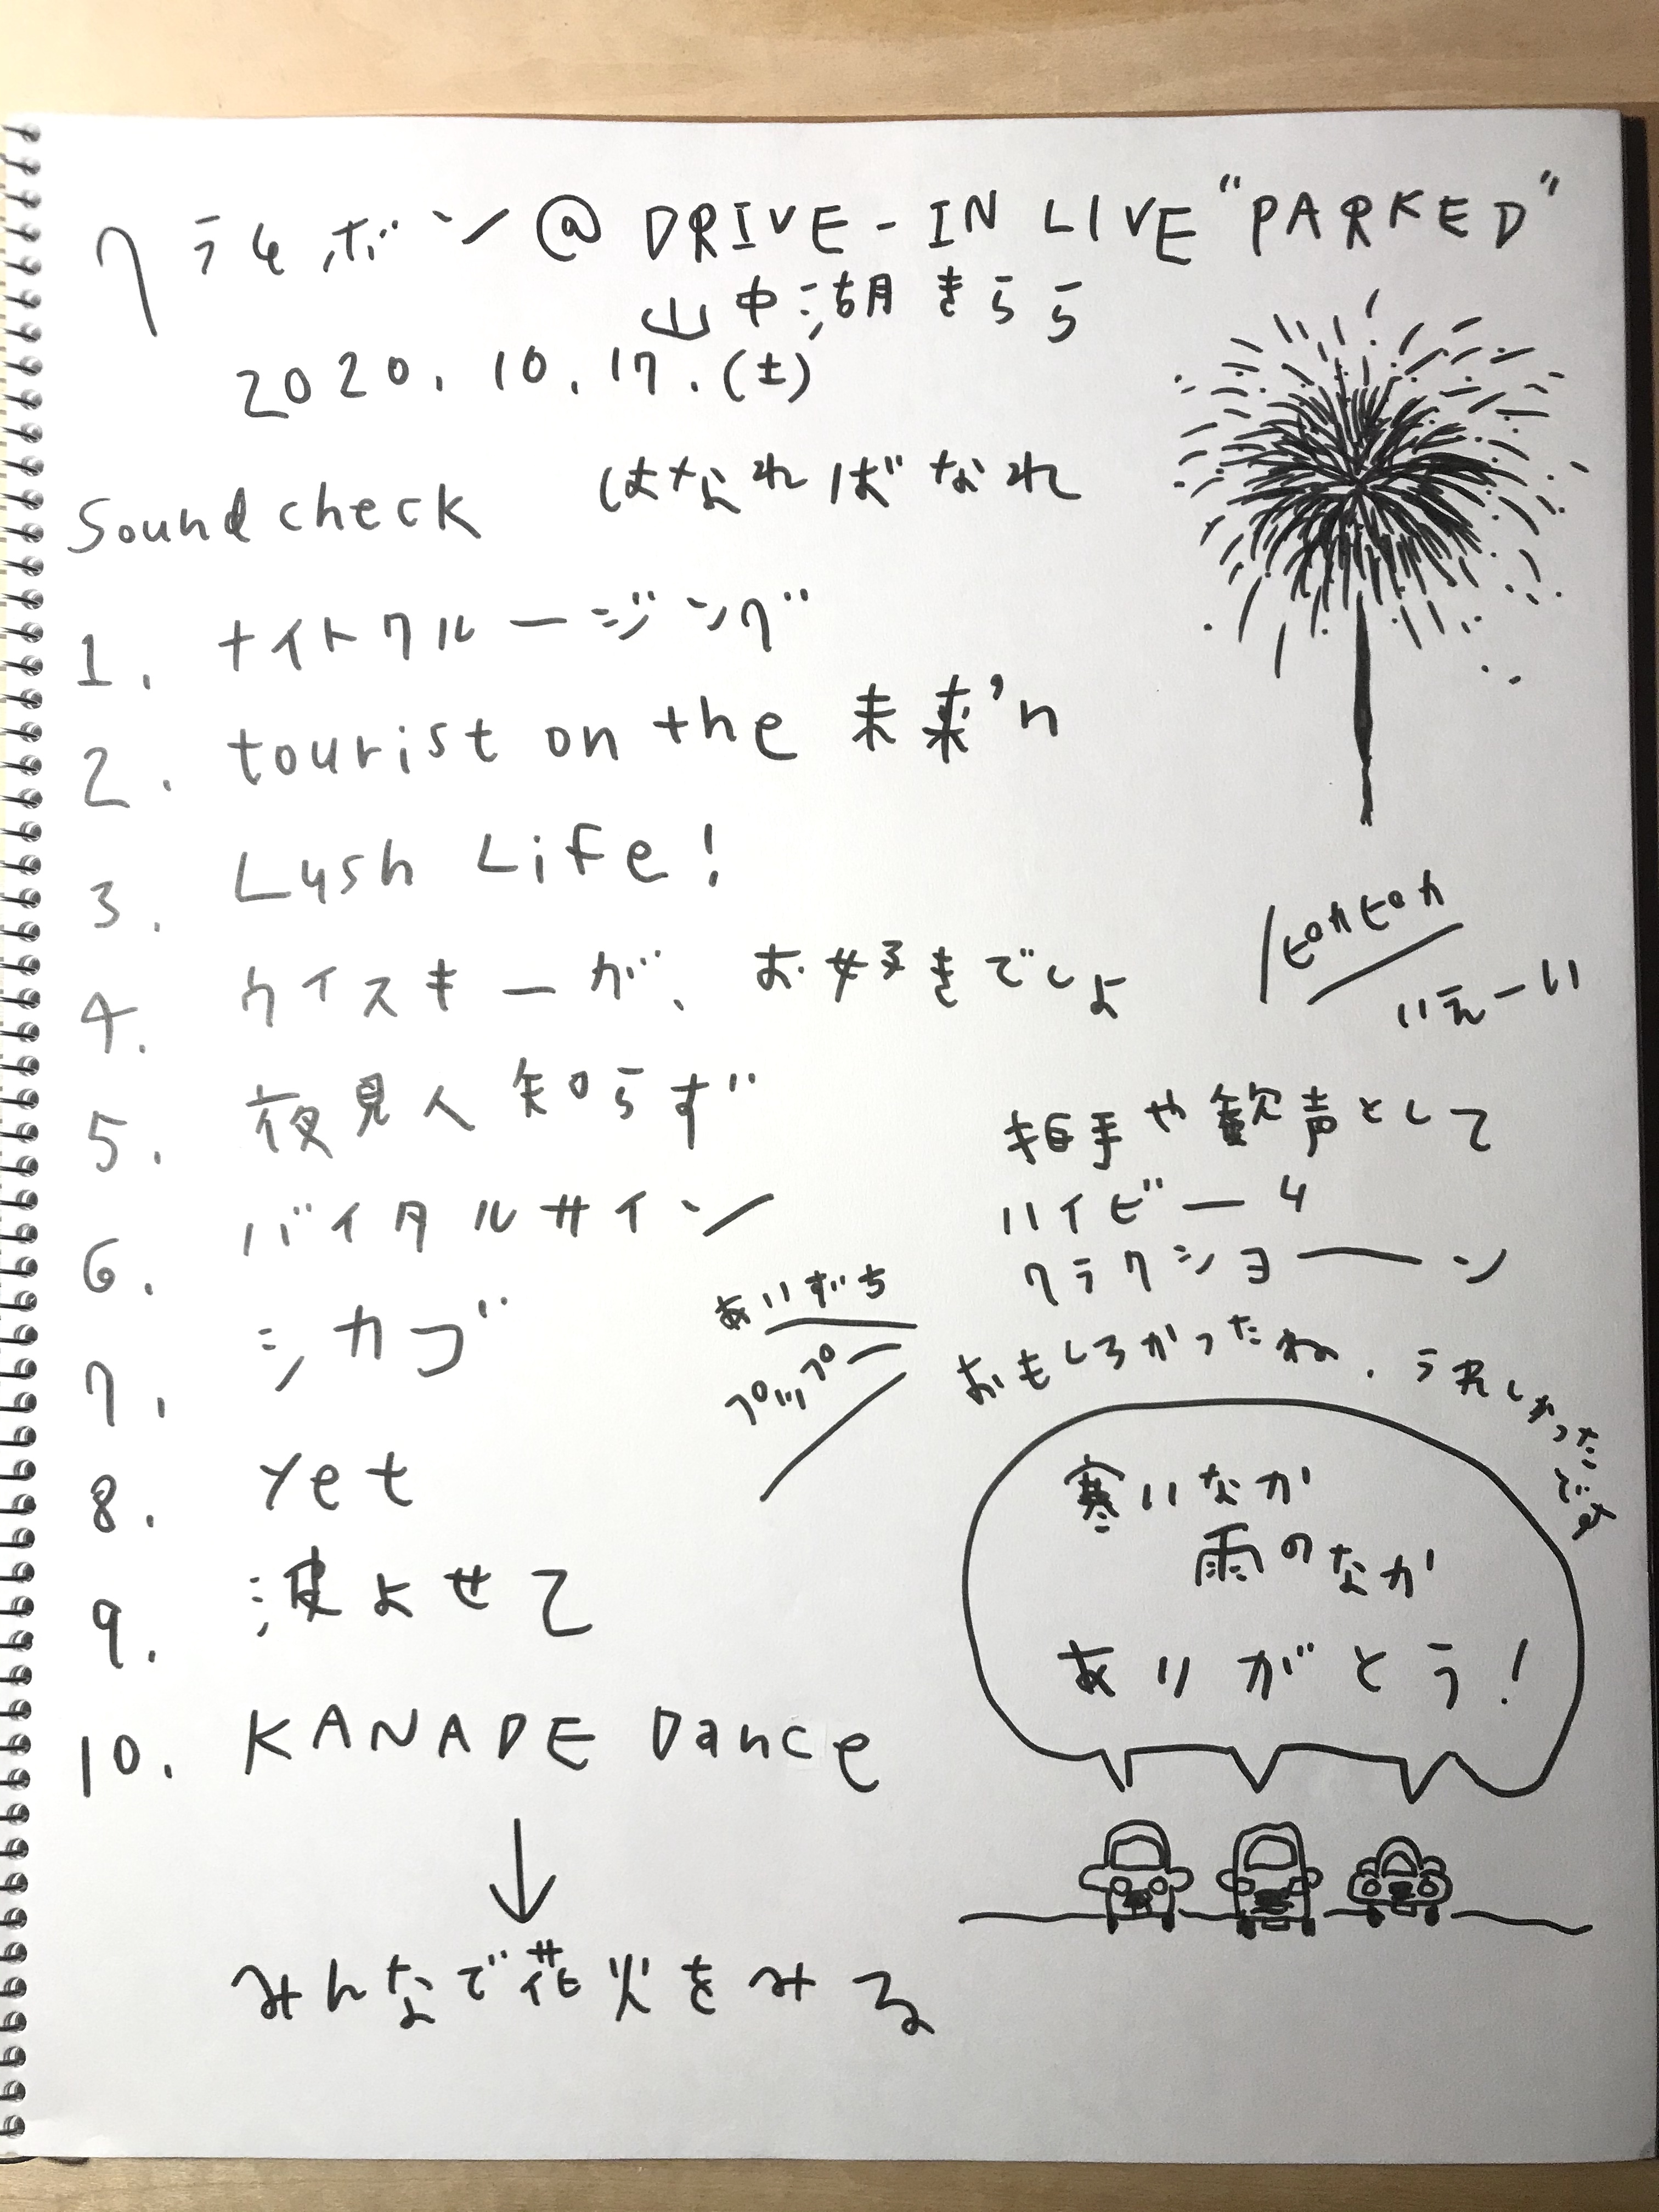 クラムボン@DRIVE-IN LIVE "PARKED"
山中湖きらら
2020.10.17.(土)
Soundcheck はなればなれ
1. ナイトクルージング
2. tourist on the 未来'n
3. Lush Life!
4. ウイスキーが、お好きでしょ
5. 夜見人知らず
6. バイタルサイン
7. シカゴ
8. yet
9. 波よせて
10. KANADE Dance
↓
みんなで花火をみる
ピカピカ
いえーい
拍手や歓声として
ハイビーム
クラクショーン
あいずち
プップー
おもしろかったね.うれしかったです
寒いなか
雨のなか
ありがとう!